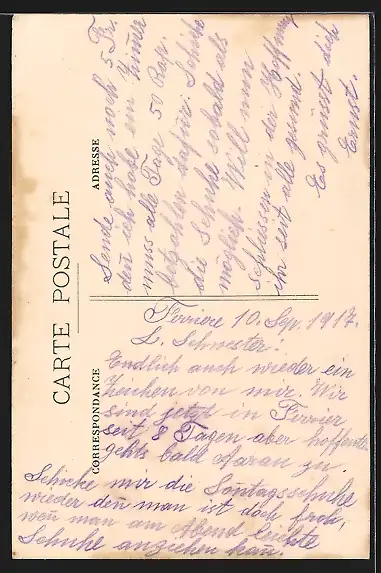 CARTE POSTALE
CORRESPONDANCE
ADRESSE
Ferriere 10. Sep. 1917.
L. Schwester!
Endlich auch wieder ein
Zeichen von mir. Wir
sind jetzt in Ferrier
seit 8 Tagen aber hoffentl.
gehts bald Aarau zu.
Schicke mir die Sontagsschuhe
wieder den̄ man ist doch froh,
wen̄ man am Abend leichte
Schuhe anziehen kan̄.
Sende auch noch 5 Fr.
den̄ ich habe ein Zimer
muss alle Tage 50 Rap.
betzahlen dafür. Schick
die Schuhe sobald als
möglich. Will nun
schliessen in der Hoffnung
ihr seit alle gesund.
Es grüsst dich
Ernst.